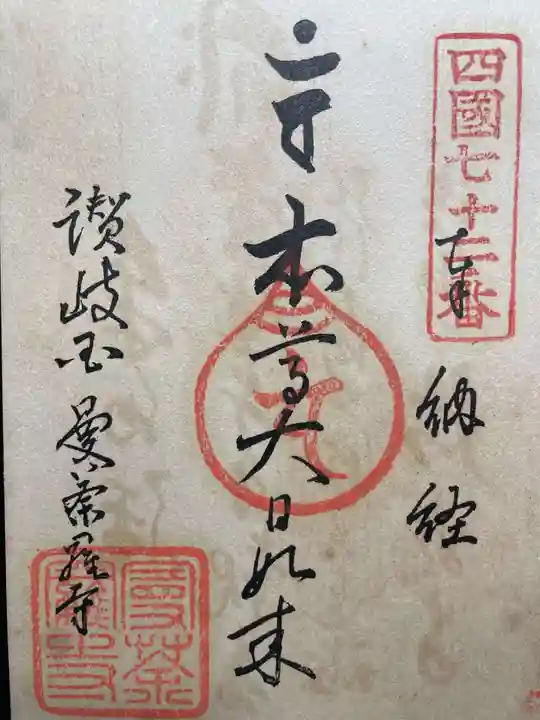 四國七十二番
奉納経
本尊大日如来
讃岐国 曼荼羅寺
曼荼羅寺